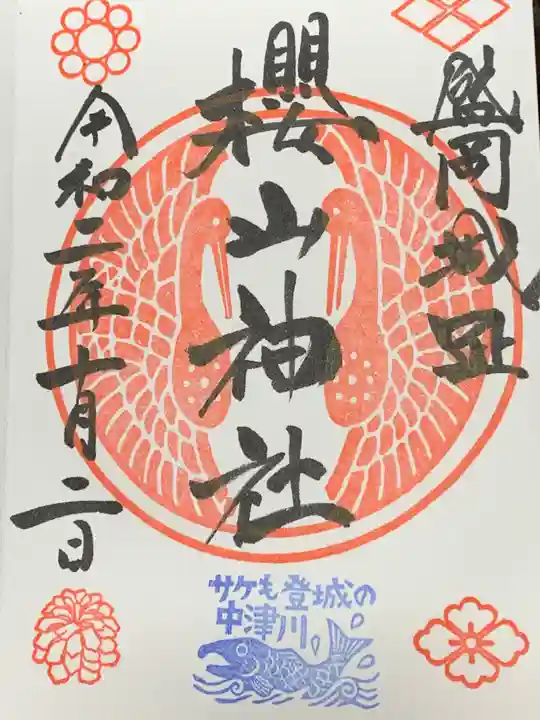 盛岡城趾
櫻山神社
令和二年十月二日
サケも登城の
中津川